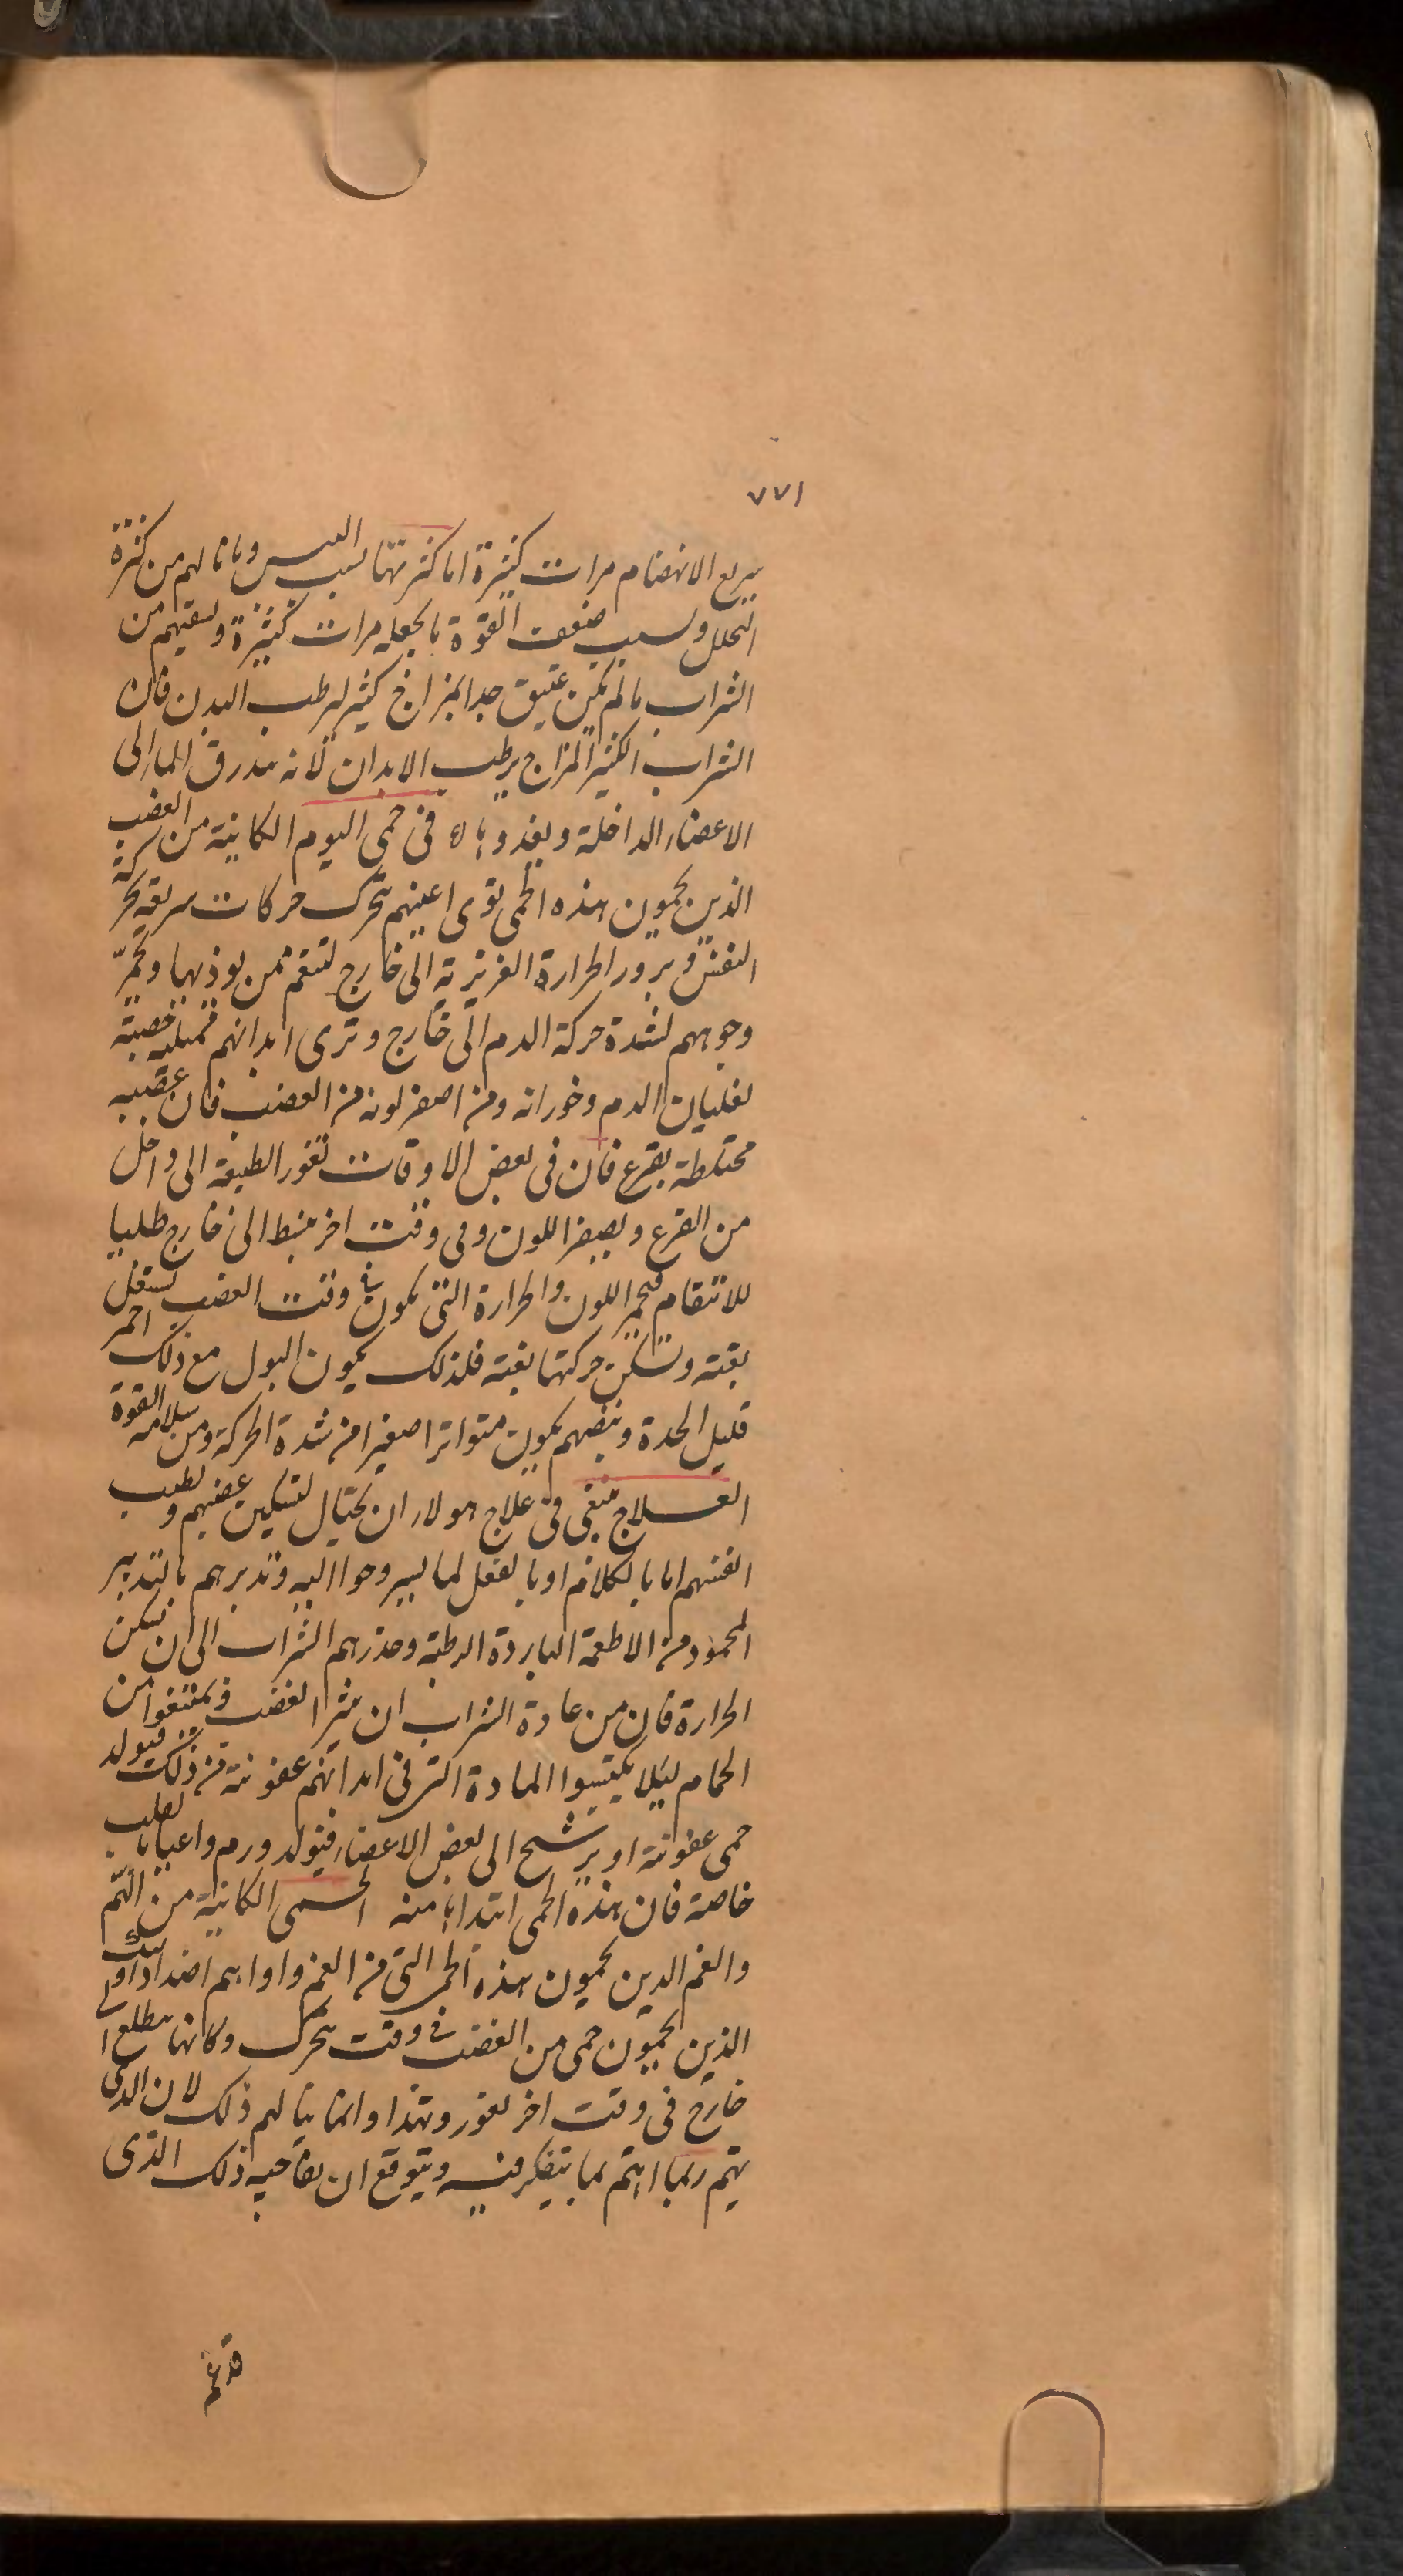 ٧٧١
سريع الانهضام مرات كثيرة اما كثرتها بسبب اليبس وما نالهم من كثرة
التحلل وبسبب ضعف القوة ما يجعله مرات كثيرة ويسقيهم من
الشراب ما لم يكن عتيق جدا بمزاج كثير ليرطب البدن فان
الشراب الكثير المزاج يرطب الابدان لانه يبدرق الماء الى
الاعضاء الداخلة ويغذوها في حمى اليوم الكاينة من الغضب
الذين يحمون هذه الحمى نرى اعينهم تتحرك حركات سريعة لحركة
النفس وبروز الحرارة الغريزية الى خارج لتنتقم ممن يوذيها وتحمرّ
وجوههم لشدة حركة الدم الى خارج وترى ابدانهم ممتلية خصبة
لغليان الدم وفورانه ومن اصفر لونه من الغضب فان غضبه
مختلطة بفزع فان في بعض الاوقات تغور الطبيعة الى داخل
من الفزع ويصفر اللون وفي وقت اخر ينبسط الى خارج طلبا
للانتقام فيحمر اللون والحرارة التي تكون في وقت الغضب تشتعل
بغتة وتسكن حركتها بغتة فلذلك يكون البول مع ذلك احمر
قليل الحدة ونبضهم يكون متواترا صغيرا من شدة الحركة ومن سلامة القوة
العلاج ينبغي في علاج هولاء ان يحتال لتسكين غضبهم وتطيب
انفسهم اما بالكلام او بالفعل لما يستروحوا اليه وتدبرهم بالتدبير
المحمود من الاطعمة الباردة الرطبة وحذرهم الشراب الى ان تسكن
الحرارة فان من عادة الشراب ان يثير الغضب ويمتنعوا من
الحمام ليلا يكتسبوا المادة التي في ابدانهم عفونة من ذلك فيولد
حمى عفونة او يرشح الى بعض الاعضاء فيتولد ورم واعيا بالقلب
خاصة فان هذه الحمى ابتداها منه الحمى الكاينة من الهمّ
والغم الذين يحمون هذه الحمى التي من الغم واواهم اضداد اوليك
الذين يحمون حمى من الغضب في وقت تتحرك وكانها تطلع ا
خارج في وقت اخر تغور وتهدا وانما ينالهم ذلك لان الذي
يهم ربما اهتم بما يتفكر فيه ويتوقع ان يفاجيه ذلك الذي
قد غم